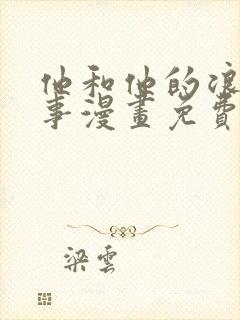 他和他的浪
事漫畫免費
梁雲